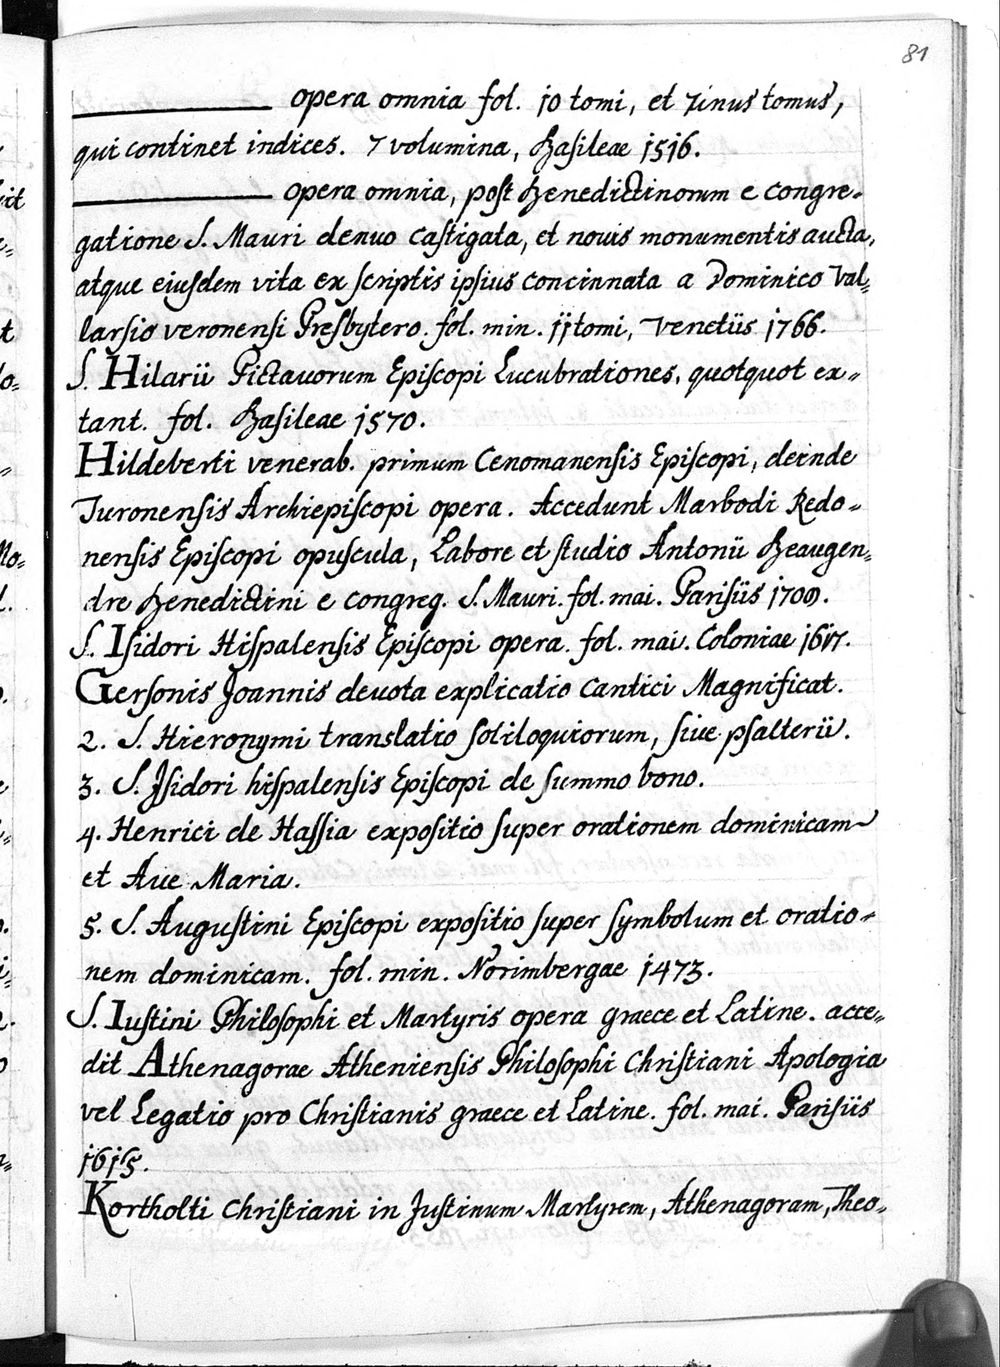 81
opera omnia fol. 10 tomi, et unus tomus,
qui continet indices. 7 volumina, Basileae 1516.
opera omnia, post Benedictinorum e congre-
gatione S. Mauri denuo castigata, et nouis monumentis aucta,
atque eiusdem vita ex scriptis ipsius concinnata a Dominico Val-
larsio veronensi Presbytero. fol. min. 11 tomi, Venetiis 1766.
S. Hilarii Pictauorum Episcopi Lucubrationes, quotquot ex-
tant. fol. Basileae 1570.
Hildeberti venerab. primum Cenomanensis Episcopi, deinde
Turonensis Archiepiscopi opera. Accedunt Marbodi Redo-
nensis Episcopi opuscula, Labore et studio Antonii Beaugen-
dre Benedictini e congreg. S. Mauri. fol. mai. Parisiis 1709.
S. Isidori Hispalensis Episcopi opera. fol. mai. Coloniae 1617.
Gersonis Joannis deuota explicatio cantici Magnificat.
2. S. Hieronymi translatio soliloquiorum, siue psalterii.
3. S. Isidori hispalensis Episcopi de summo bono.
4. Henrici de Hassia expositio super orationem dominicam
et Aue Maria.
5. S. Augustini Episcopi expositio super symbolum et oratio-
nem dominicam. fol. min. Norimbergae 1473.
S. Iustini Philosophi et Martyris opera graece et Latine. acce-
dit Athenagorae Atheniensis Philosophi Christiani Apologia
vel Legatio pro Christianis graece et Latine. fol. mai. Parisiis
1615.
Kortholti Christiani in Justinum Martyrem, Athenagoram, Theo-